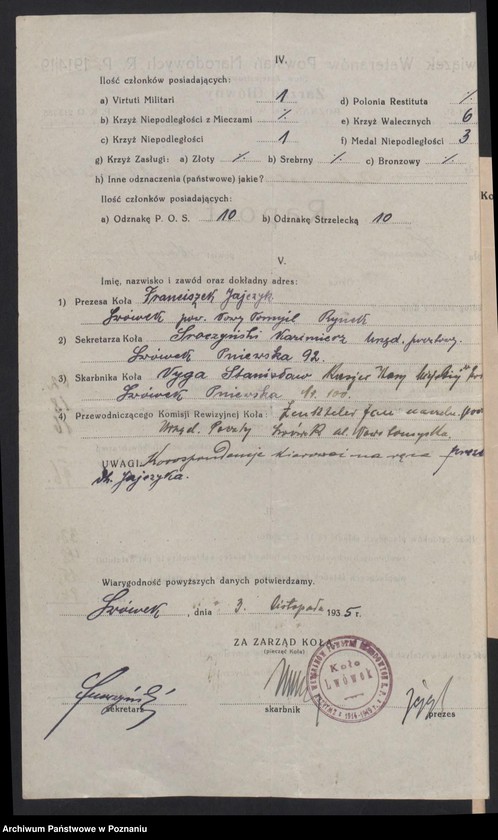 IV.
Ilość członków posiadających:
a) Virtuti Militari 1 d) Polonia Restituta ⁒
b) Krzyż Niepodległości z Mieczami ⁒ e) Krzyż Walecznych 6
c) Krzyż Niepodległości 1 f) Medal Niepodległości 3
g) Krzyż Zasługi: a) Złoty ⁒ b) Srebrny ⁒ c) Bronzowy ⁒
h) Inne odznaczenia (państwowe) jakie?
Ilość członków posiadających:
a) Odznakę P. O. S. 10 b) Odznakę Strzelecką 10
V.
Imię, nazwisko i zawód oraz dokładny adres:
1) Prezesa Koła Franciszek Jajczyk
Lwówek pow. Nowy Tomyśl Rynek
2) Sekretarza Koła Kazimierz Urzęd. pocztowy.
Lwówek Pniewska 92.
3) Skarbnika Koła Vyga Stanisław Kasjer
Lwówek Pniewska Nr. 100.
4) Przewodniczącego Komisji Rewizyjnej Koła: Jan
Urząd. Poczty Lwówek ul. Nowotomyska,
UWAGI Korespondencje kierować na ręce
Dh. Jajczyka.
Wiarygodność powyższych danych potwierdzamy.
Lwówek, dnia 3. listopada 1935 r.
ZA ZARZĄD KOŁA
(pieczęć Koła)
Koło
Lwówek
sekretarz skarbnik prezes
Ko
Archiwum Państwowe w Poznaniu